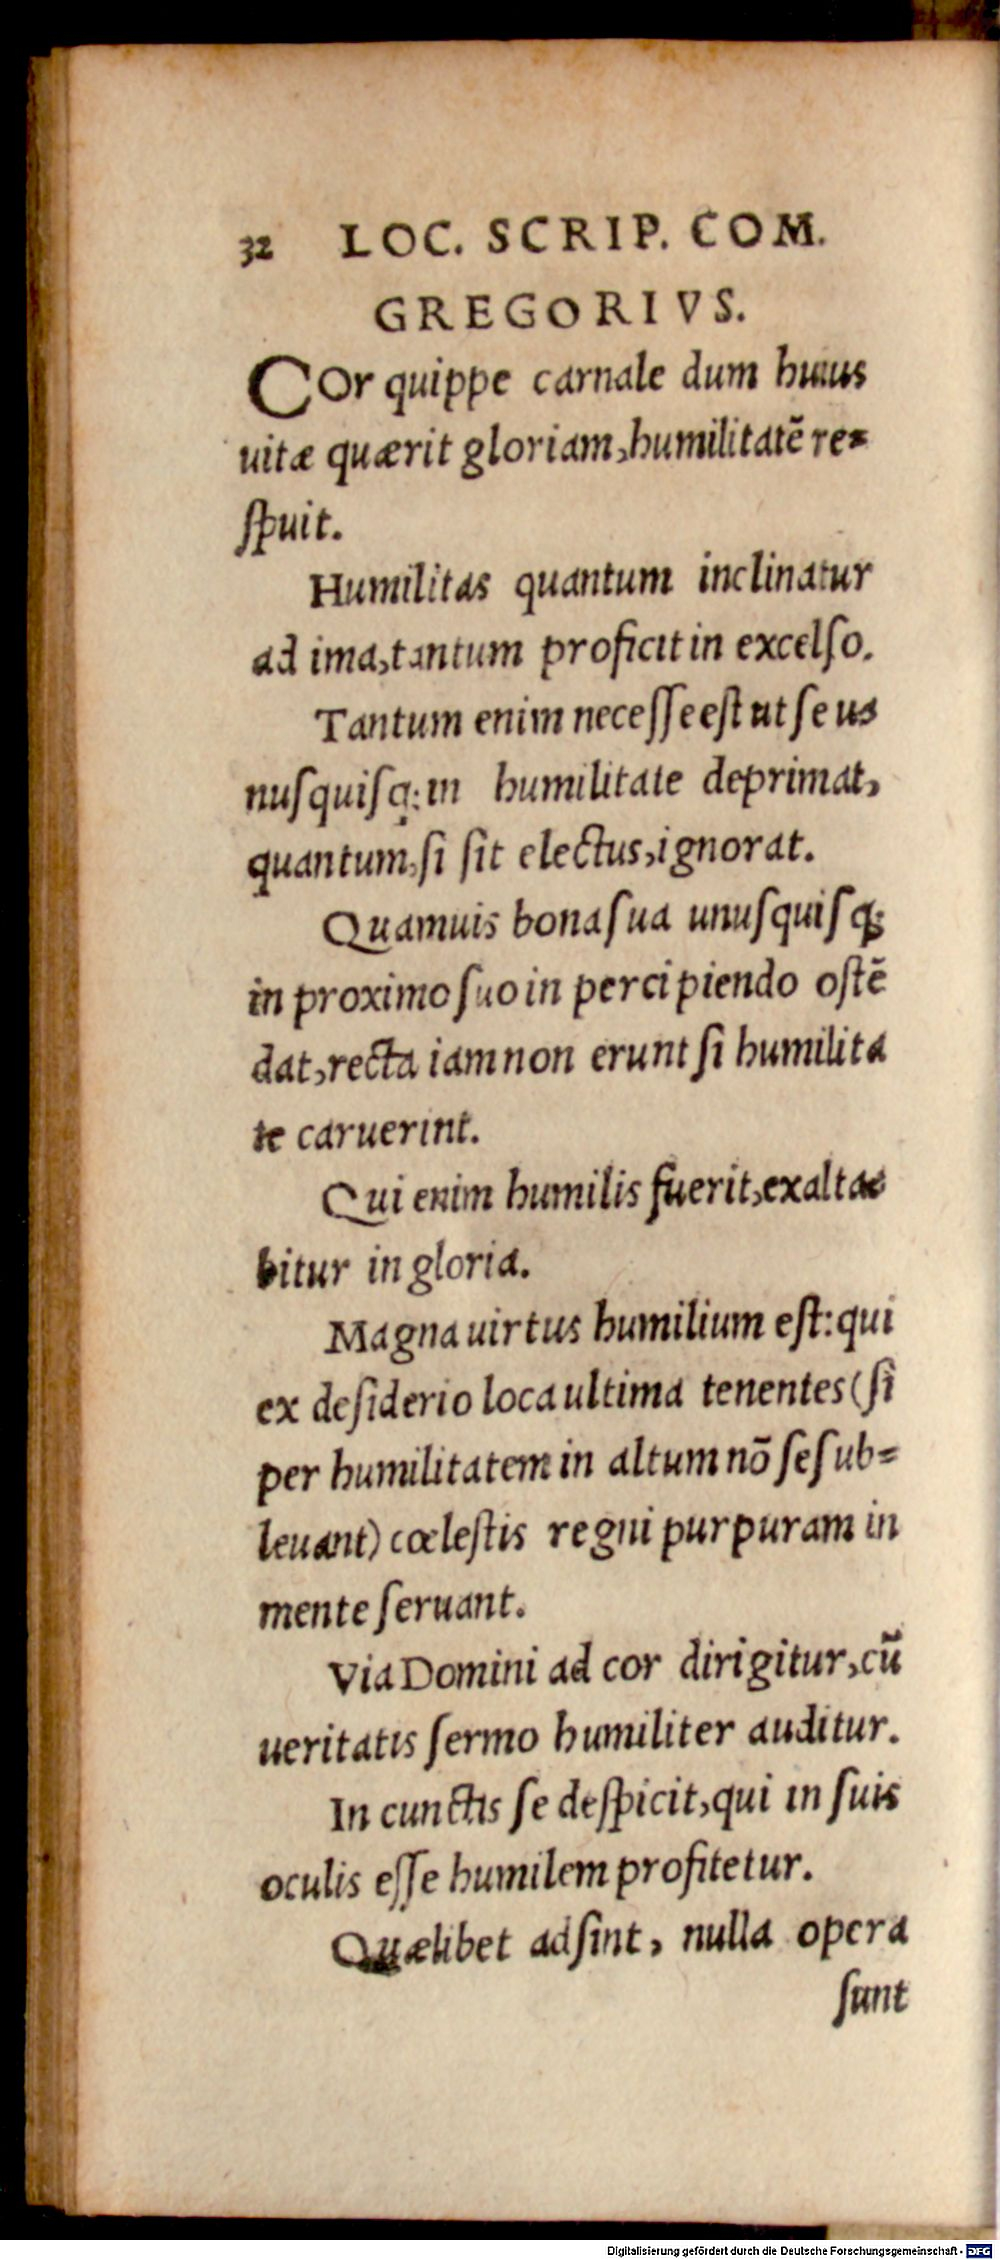 32 LOC. SCRIP. COM.
GREGORIVS.
COr quippe carnale dum huius
uitæ quærit gloriam, humilitatē re=
ſpuit.
Humilitas quantum inclinatur
ad ima, tantum proficit in excelſo.
Tantum enim neceſſe eſt ut ſe u=
nuſquiſq; in humilitate deprimat,
quantum, ſi ſit electus, ignorat.
Quamuis bona ſua unuſquiſq;
in proximo ſuo in percipiendo oſtē
dat, recta iam non erunt ſi humilita
te caruerint.
Qui enim humilis fuerit, exalta=
bitur in gloria.
Magna uirtus humilium eſt: qui
ex deſiderio loca ultima tenentes (ſi
per humilitatem in altum nō ſe ſub=
leuant) cœleſtis regni purpuram in
mente ſeruant.
Via Domini ad cor dirigitur, cū
ueritatis ſermo humiliter auditur.
In cunctis ſe deſpicit, qui in ſuis
oculis eſſe humilem profitetur.
Quælibet adſint, nulla opera
ſunt
Digitalisierung gefördert durch die Deutsche Forschungsgemeinschaft - DFG